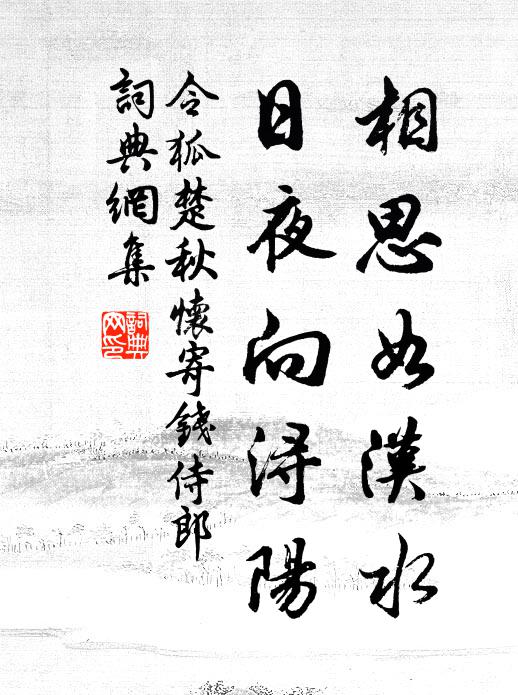 相思如漢水
日夜向潯陽
令狐楚秋懷寄錢侍郎
詞典網集
詞典
网印